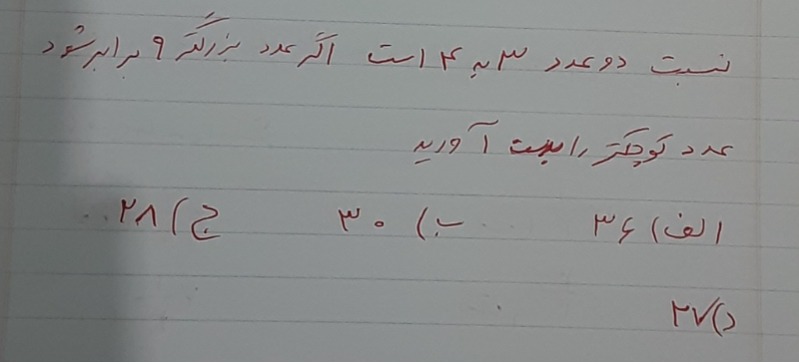 نسبت دو عدد ۳ به ۴ است اگر عدد بزرگتر ۹ برابر شود
عدد کوچکتر را بدست آورید
الف) ۳۶ ب) ۳۰ ج) ۲۸
د) ۲۷